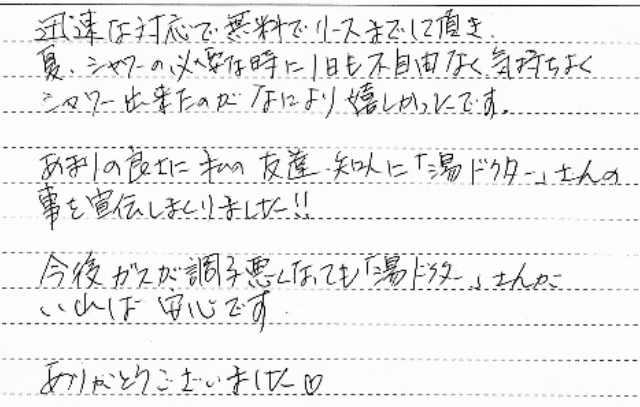 迅速な対応で無料でリースまでして頂き、
夏、シャワーの必要な時に1日も不自由なく気持ちよく
シャワー出来たのがなにより嬉しかったです。
あまりの良さに私の友達、知人に「湯ドクター」さんの
事を宣伝しまくりました!!
今後ガスが調子悪くなっても「湯ドクター」さんが
いれば安心です。
ありがとうございました♡